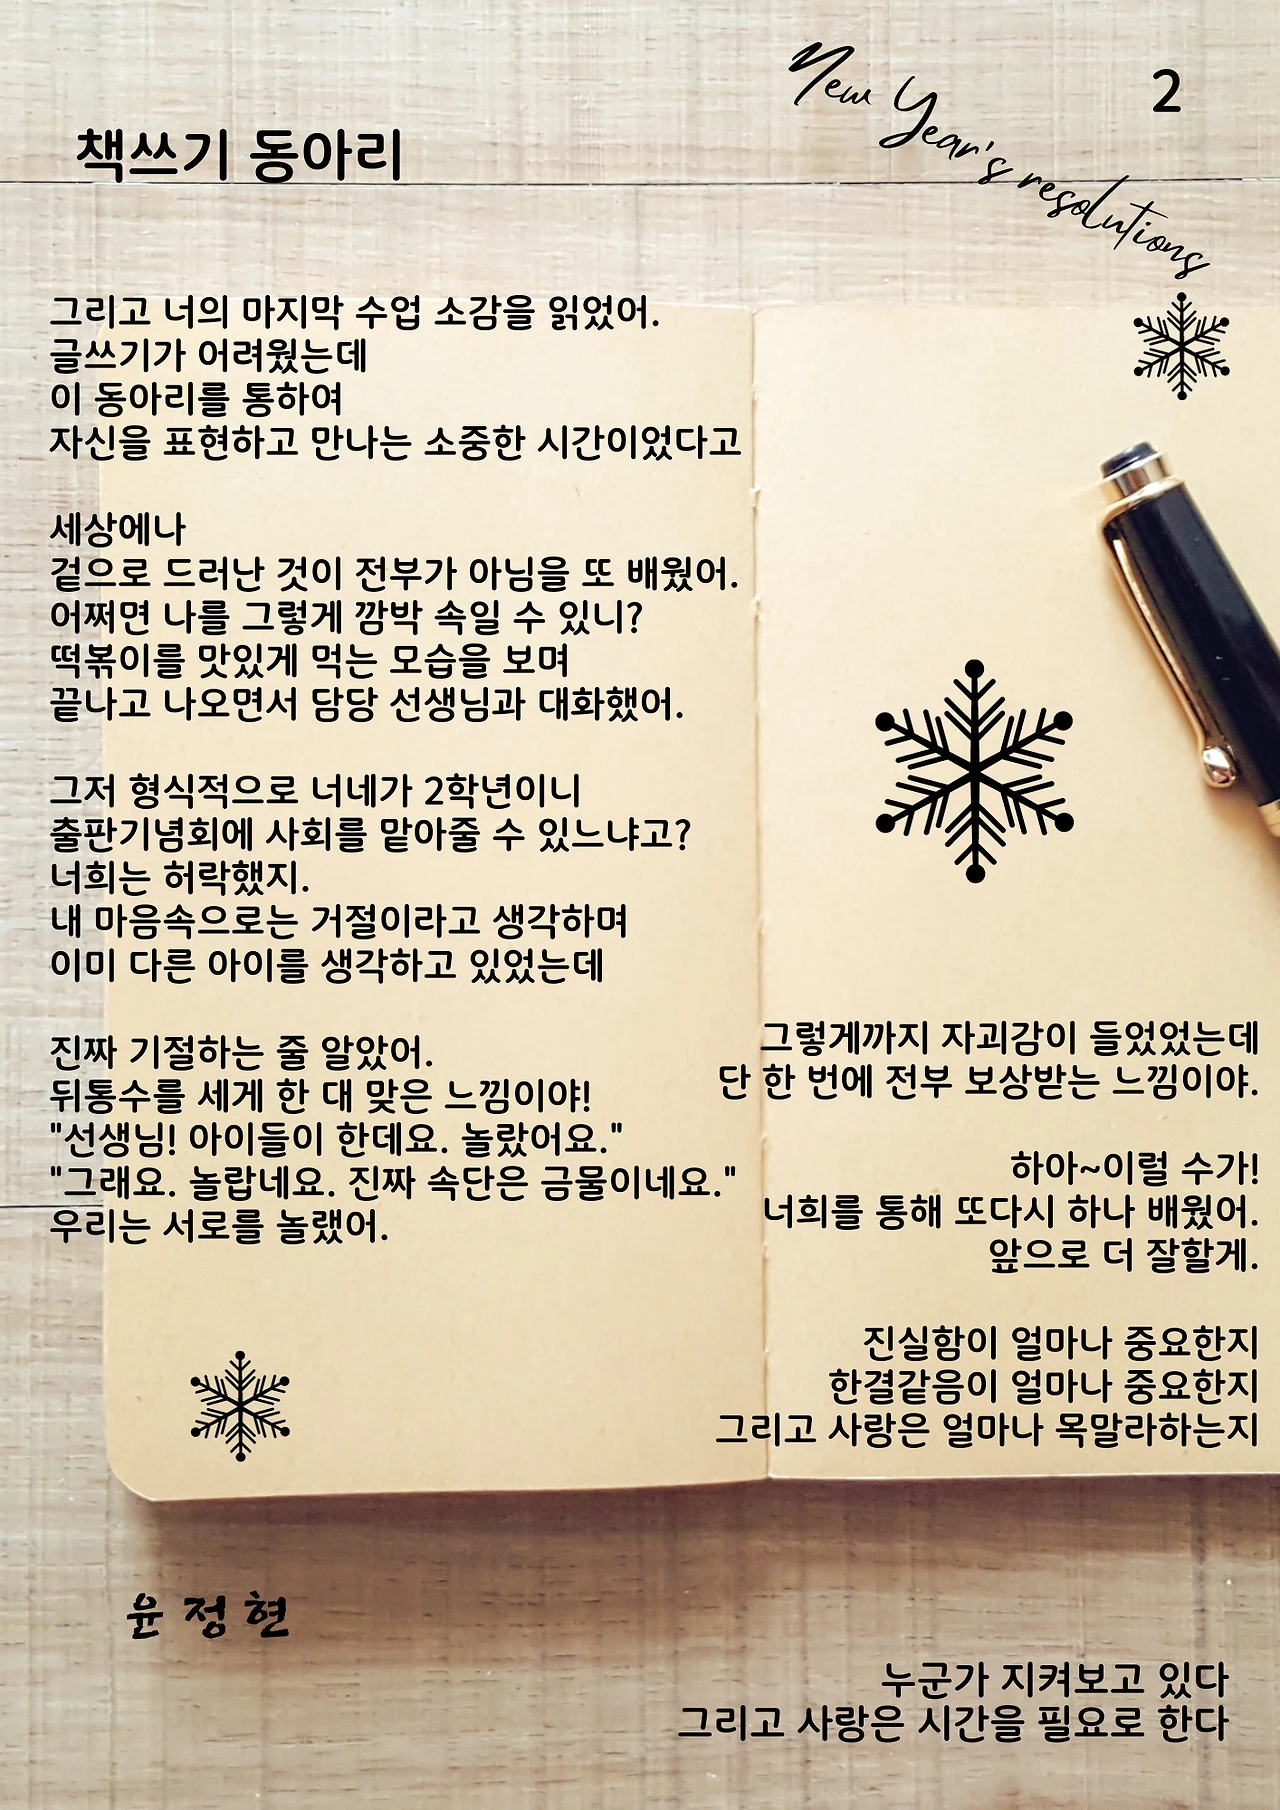 New Year's resolutions
2
책쓰기 동아리
그리고 너의 마지막 수업 소감을 읽었어.
글쓰기가 어려웠는데
이 동아리를 통하여
자신을 표현하고 만나는 소중한 시간이었다고
세상에나
겉으로 드러난 것이 전부가 아님을 또 배웠어.
어쩌면 나를 그렇게 깜박 속일 수 있니?
떡볶이를 맛있게 먹는 모습을 보며
끝나고 나오면서 담당 선생님과 대화했어.
그저 형식적으로 너네가 2학년이니
출판기념회에 사회를 맡아줄 수 있느냐고?
너희는 허락했지.
내 마음속으로는 거절이라고 생각하며
이미 다른 아이를 생각하고 있었는데
진짜 기절하는 줄 알았어.
뒤통수를 세게 한 대 맞은 느낌이야!
"선생님! 아이들이 한데요. 놀랐어요."
"그래요. 놀랍네요. 진짜 속단은 금물이네요."
우리는 서로를 놀랬어.
그렇게까지 자괴감이 들었었는데
단 한 번에 전부 보상받는 느낌이야.
하아~이럴 수가!
너희를 통해 또다시 하나 배웠어.
앞으로 더 잘할게.
진실함이 얼마나 중요한지
한결같음이 얼마나 중요한지
그리고 사랑은 얼마나 목말라하는지
윤정현
누군가 지켜보고 있다
그리고 사랑은 시간을 필요로 한다